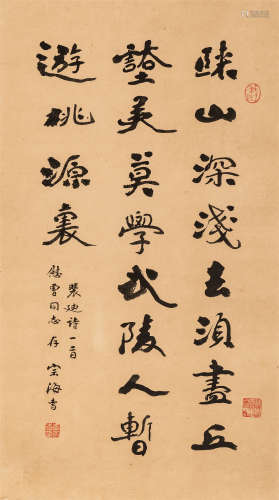 歸山深淺去須盡丘
壑美莫學武陵人暫
遊桃源裏
裴迪诗一首
曹同志存 海書